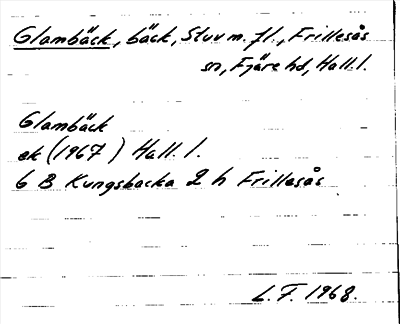 Glambäck, bäck, Stuv m. fl., Frillesås
sn, Fjäre hd, Hall. l.
Glambäck
ek (1967) Hall. l.
6 B Kungsbacka 2 h Frillesås
L. F. 1968.